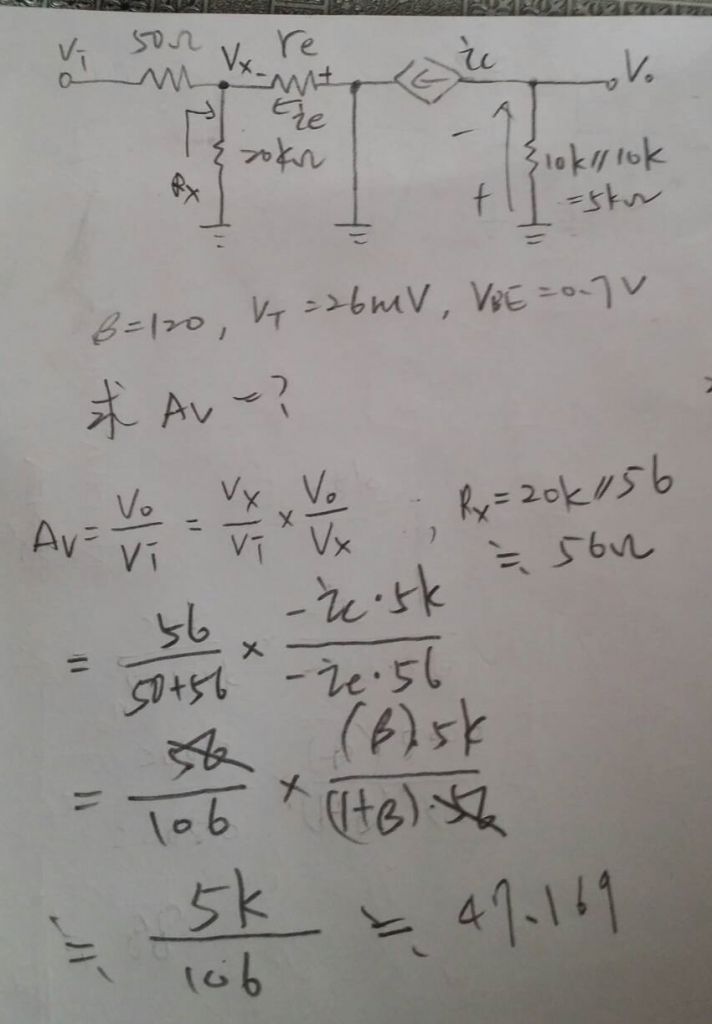 Vi 50Ω Vx - re + ic Vo
ie
Rx 20kΩ - + 10k//10k
=5kΩ
β=120, VT=26mV, VBE=0.7V
求 AV=?
AV = Vo/Vi = Vx/Vi × Vo/Vx , Rx=20k//56
≒ 56Ω
= 56/(50+56) × (-ic·5k)/(-ie·56)
= 56/106 × (β)·5k/((1+β)·56)
≒ 5k/106 ≒ 47.169